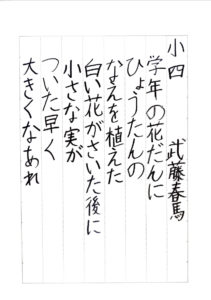 小四　武藤春馬
学年の花だんに
ひょうたんの
なえを植えた
白い花がさいた後に
小さな実が
ついた早く
大きくなあれ